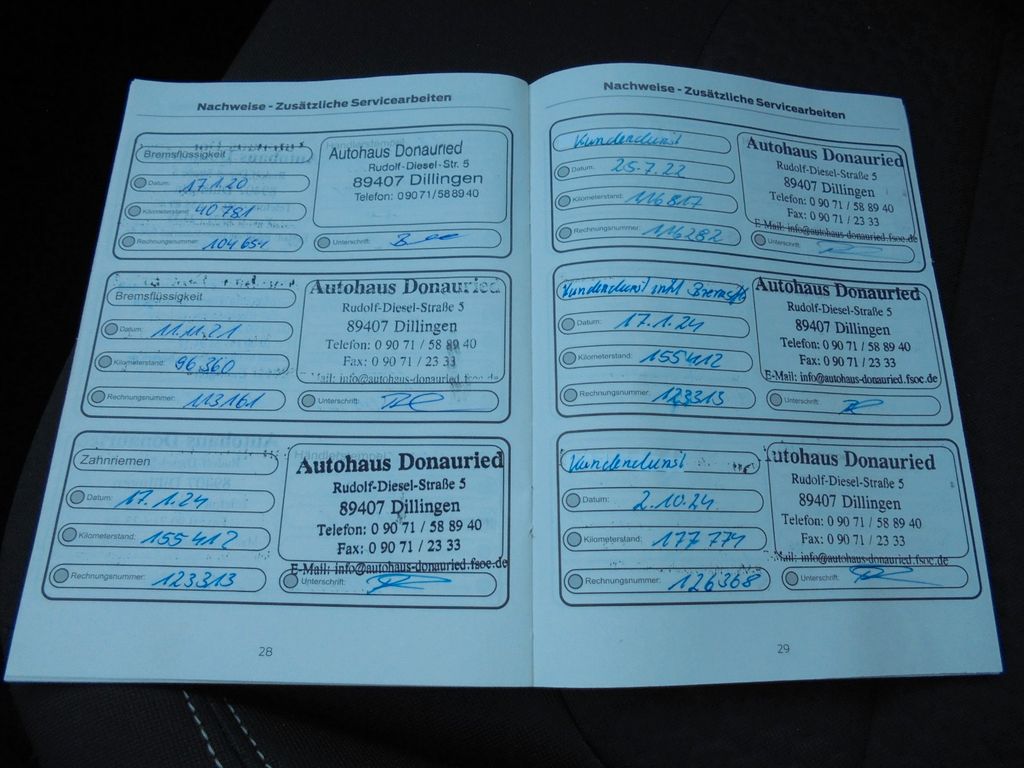 Nachweise - Zusätzliche Servicearbeiten
Bremsflüssigkeit
Datum: 17.1.20
Kilometerstand: 40 781
Rechnungsnummer: 104651
Autohaus Donauried
Rudolf-Diesel-Str. 5
89407 Dillingen
Telefon: 09071/588940
Unterschrift:
Bremsflüssigkeit
Datum: 11.11.21
Kilometerstand: 96.360
Rechnungsnummer: 113161
Autohaus Donauried
Rudolf-Diesel-Straße 5
89407 Dillingen
Telefon: 0 90 71 / 58 89 40
Fax: 0 90 71 / 23 33
Mail: info@autohaus-donauried.fsoc.de
Unterschrift:
Zahnriemen
Datum: 17.1.24
Kilometerstand: 155 412
Rechnungsnummer: 123313
Autohaus Donauried
Rudolf-Diesel-Straße 5
89407 Dillingen
Telefon: 0 90 71 / 58 89 40
Fax: 0 90 71 / 23 33
E-Mail: info@autohaus-donauried.fsoc.de
Unterschrift:
28
Nachweise - Zusätzliche Servicearbeiten
Kundendienst
Datum: 25.7.22
Kilometerstand: 116817
Rechnungsnummer: 116282
Autohaus Donauried
Rudolf-Diesel-Straße 5
89407 Dillingen
Telefon: 0 90 71 / 58 89 40
Fax: 0 90 71 / 23 33
E-Mail: info@autohaus-donauried.fsoc.de
Unterschrift:
Kundendienst inkl
Datum: 17.1.24
Kilometerstand: 155412
Rechnungsnummer: 123313
Autohaus Donauried
Rudolf-Diesel-Straße 5
89407 Dillingen
Telefon: 0 90 71 / 58 89 40
Fax: 0 90 71 / 23 33
E-Mail: info@autohaus-donauried.fsoc.de
Unterschrift:
Kundendienst
Datum: 2.10.24
Kilometerstand: 177 771
Rechnungsnummer: 126368
utohaus Donauried
Rudolf-Diesel-Straße 5
89407 Dillingen
Telefon: 0 90 71 / 58 89 40
Fax: 0 90 71 / 23 33
Mail: info@autohaus-donauried.fsoc.de
Unterschrift:
29